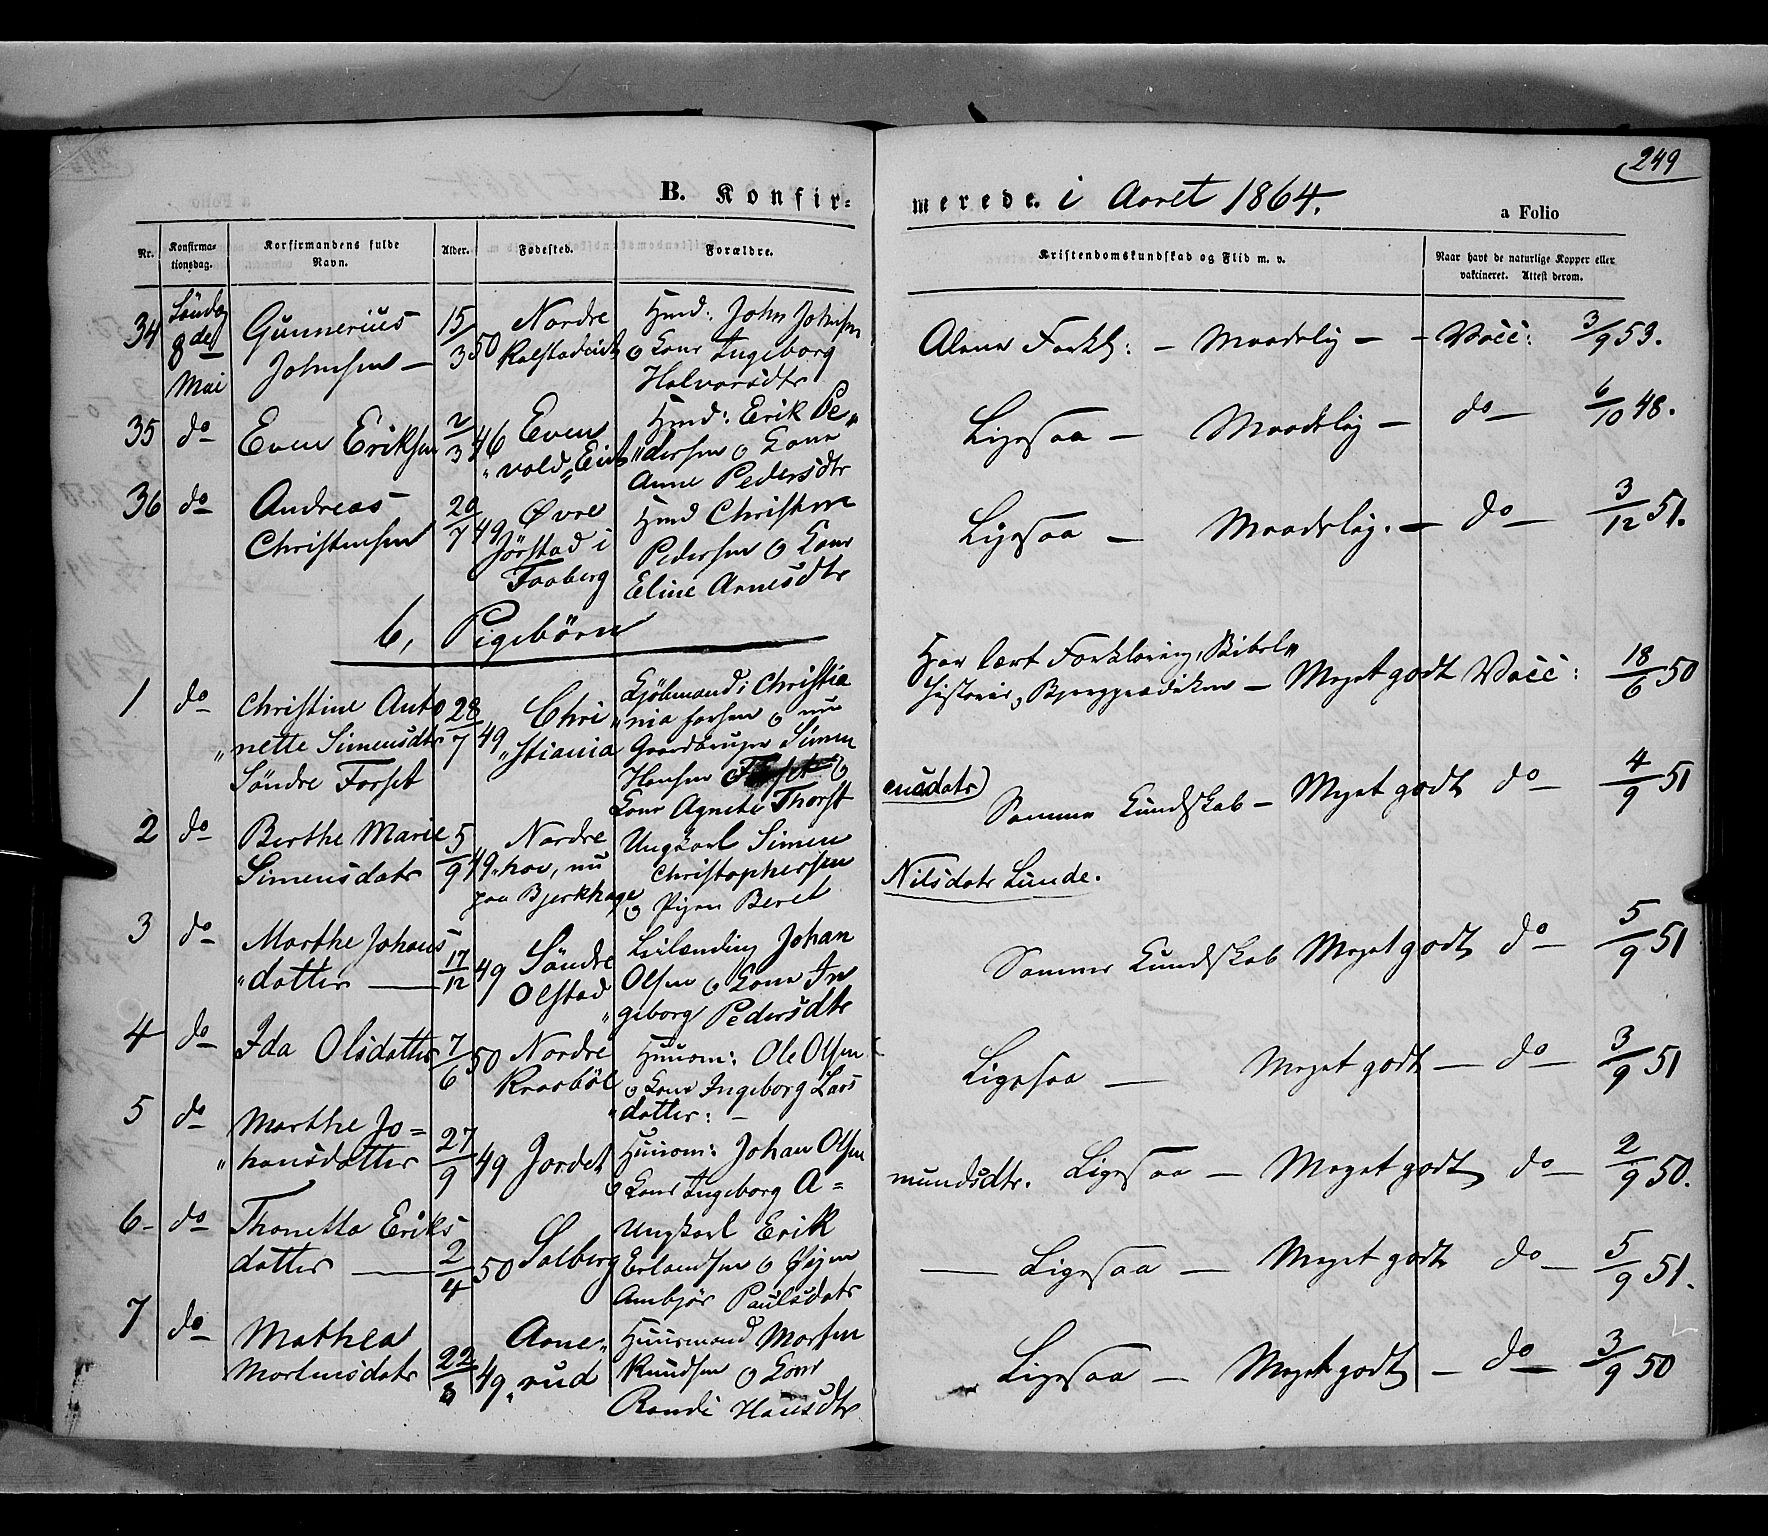 249
B. Konfir-
merede. i Aaret 1864.
a Folio
Nr.
Konfirma-
tionsdag.
Konfirmandens fulde
Navn.
Alder.
Fødested.
Forældre.
Kristendomskundskab og Flid m. v.
Naar havt de naturlige Kopper eller
vakcineret. Attest derom.
34 Söndag
8de
Mai
Gunnerius
Johnsen —
15/3 50
Nordre
Hmd: John Johnsen
o Kone Ingeborg
Halvorsdtr
Alene Forkl: — Maadelig — — Vacc: 3/9 53.
35 do Even Eriksen 2/3 46 Even
"vold, Eie
Hmd: Erik Pe"
"dersen o Kone
Anne Pedersdtr
Ligesaa — Maadelig — do — 6/10 48.
36 do Andreas
Christensen
20/7 49
Øvre
Jörstad i
Faaberg
Hmd Christen
Pedersen o Kone
Eline Arnesdtr
Ligesaa — Maadelig. — do — 3/12 51.
6, Pigebörn
1 do Christine Anto
"nette Simensdtr
Söndre Forset
28/7 49
Chri
"stiania
Kjöbmand i Christia
"nia forhen o nu
Gaardbruger Simen
Hansen o
Kone Agnete Thorst
ensdatr)
Har lært Forklaring, Bibel"
historie, Bjergprædiken — Meget godt Vacc: 18/6 50
2 do Berthe Marie
Simensdatr
5/9 49
Nordre
"hov, nu
paa Bjerkhage
Ungkarl Simen
Christophersen
o Pigen Beret
Nilsdatr Lunde.
Samme Kundskab — Meget godt do — 4/9 51
3 do Marthe Johans
"datter —
17/12 49
Söndre
Olstad
Leilænding Johan
Olsen o Kone In
"geborg Pedersdtr
Samme Kundskab Meget godt do — 5/9 51
4 do Ida Olsdatter 7/6 50 Nordre
Kraabøl
Huusm: Ole Olsen
o Kone Ingeborg Lars
"datter: —
Ligesaa — Meget godt — do — 3/9 51
5 do Marthe Jo=
"hansdatter
27/9 49 Jordet
Huusm: Johan Olsen
o Kone Ingeborg A=
mundsdtr. Ligesaa — Meget godt do — 2/9 50.
6 — do Thonette Eriks
datter —
2/4 50 Solberg
Ungkarl Erik
Erlandsen o Pigen
Ambjör Paulsdatr
— Ligesaa — Meget godt do — 5/9 51.
7 do Mathea
Mortensdatr
22/8 49
Aane"
"rud
Huusmand Morten
Knudsen o Kone
Randi Hansdtr
Ligesaa — Meget godt — do — 3/9 50